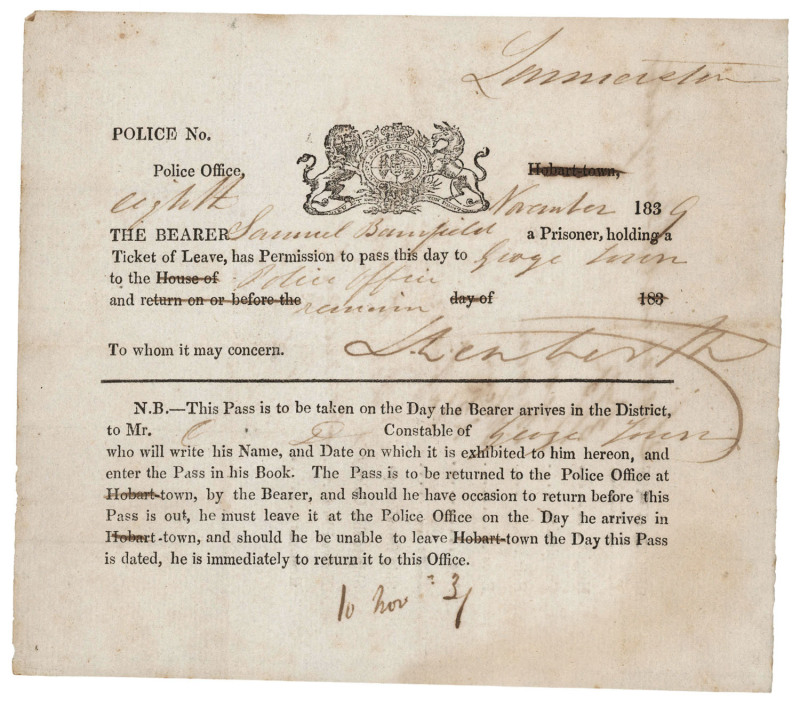 Launceston
POLICE No.
Police Office, Hobart-town,
eighth November 1839
THE BEARER Samuel Bamfield a Prisoner, holding a
Ticket of Leave, has Permission to pass this day to George Town
to the House of Police Office
and return on or before the remain day of 183
To whom it may concern.
N.B.—This Pass is to be taken on the Day the Bearer arrives in the District,
to Mr. C D Constable of George Town
who will write his Name, and Date on which it is exhibited to him hereon, and
enter the Pass in his Book. The Pass is to be returned to the Police Office at
Hobart-town, by the Bearer, and should he have occasion to return before this
Pass is out, he must leave it at the Police Office on the Day he arrives in
Hobart-town, and should he be unable to leave Hobart-town the Day this Pass
is dated, he is immediately to return it to this Office.
10 Nov